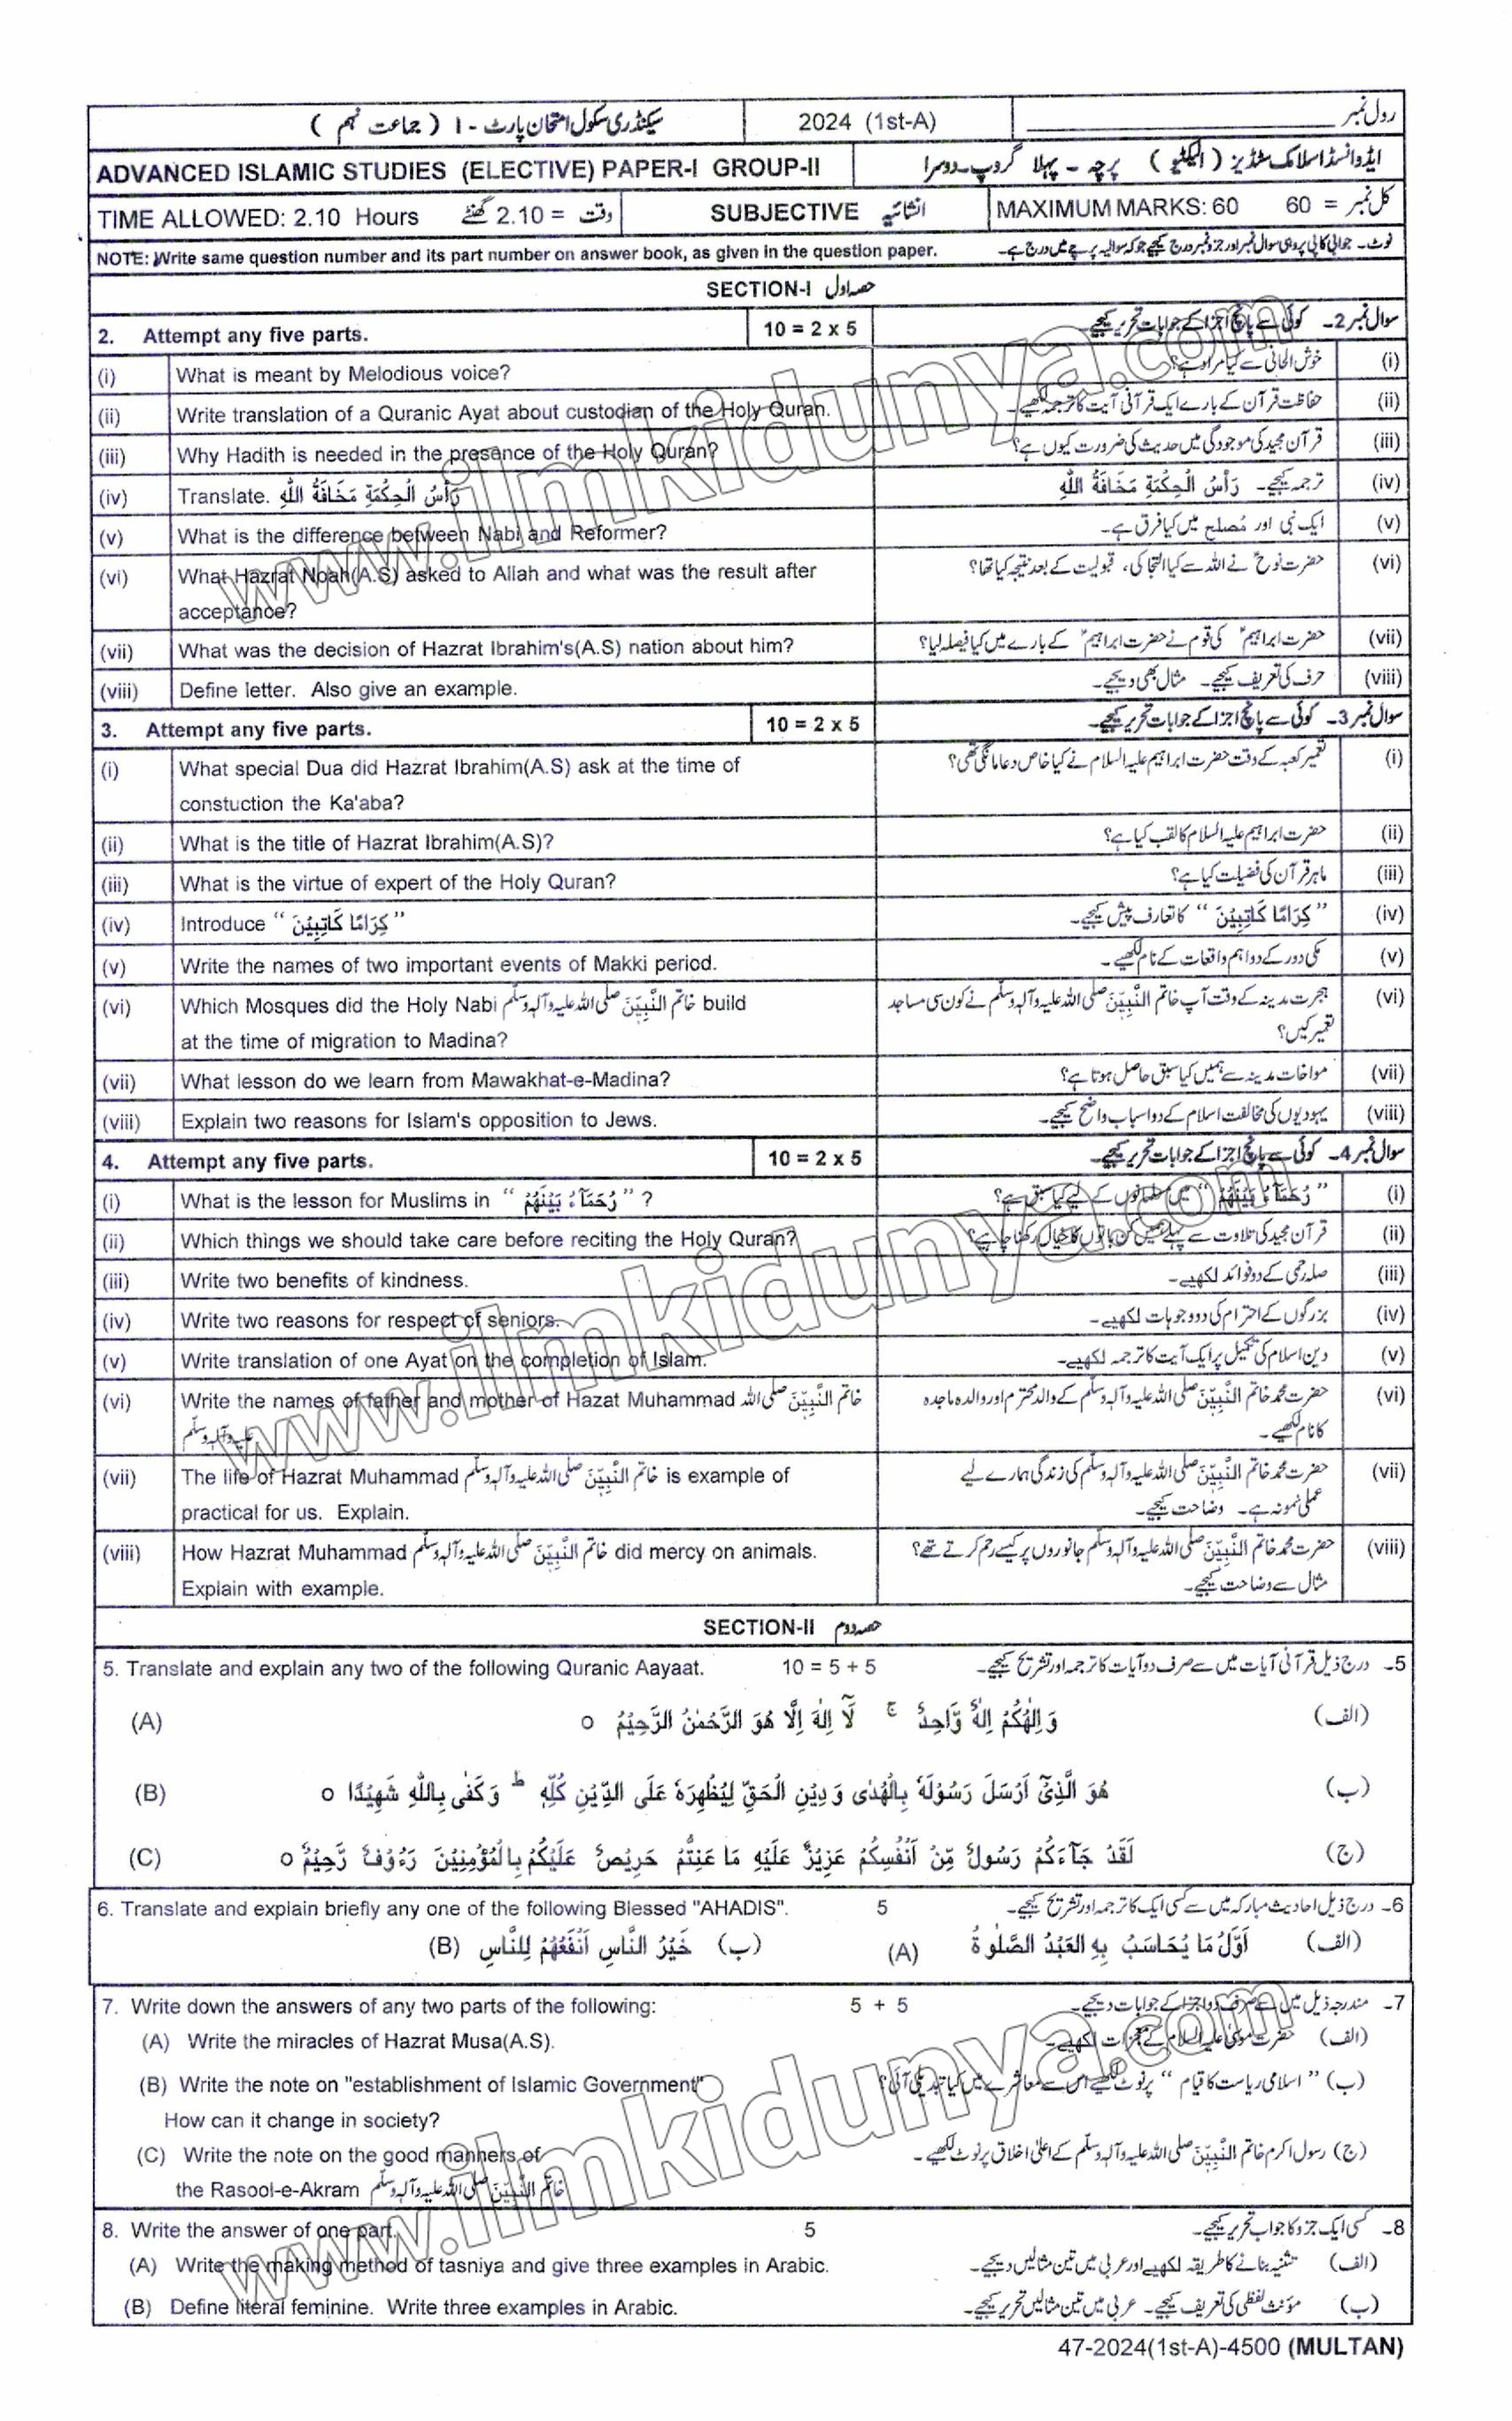 سیکنڈری سکول امتحان پارٹ - I ( جماعت نہم ) 2024 (1st-A) رول نمبر
ADVANCED ISLAMIC STUDIES (ELECTIVE) PAPER-I GROUP-II ایڈوانسڈ اسلامک سٹڈیز ( الیکٹیو ) پرچہ - پہلا گروپ - دوسرا
TIME ALLOWED: 2.10 Hours وقت = 2.10 گھنٹے SUBJECTIVE انشائیہ MAXIMUM MARKS: 60 کل نمبر = 60
NOTE: Write same question number and its part number on answer book, as given in the question paper. نوٹ۔ جوابی کاپی پر وہی سوال نمبر اور جزو نمبر درج کیجیے جو کہ سوالیہ پرچے میں درج ہے۔
SECTION-I حصہ اول
2. Attempt any five parts. 10 = 2 x 5 سوال نمبر 2۔ کوئی سے پانچ اجزا کے جوابات تحریر کیجیے۔
(i) What is meant by Melodious voice? خوش الحانی سے کیا مراد ہے؟ (i)
(ii) Write translation of a Quranic Ayat about custodian of the Holy Quran. حفاظت قرآن کے بارے ایک قرآنی آیت کا ترجمہ لکھیے۔ (ii)
(iii) Why Hadith is needed in the presence of the Holy Quran? قرآن مجید کی موجودگی میں حدیث کی ضرورت کیوں ہے؟ (iii)
(iv) Translate. رَأْسُ الْحِكْمَةِ مَخَافَةُ اللّٰهِ ترجمہ کیجیے۔ رَأْسُ الْحِكْمَةِ مَخَافَةُ اللّٰهِ (iv)
(v) What is the difference between Nabi and Reformer? ایک نبی اور مُصلح میں کیا فرق ہے۔ (v)
(vi) What Hazrat Noah(A.S) asked to Allah and what was the result after حضرت نوحؑ نے اللہ سے کیا التجا کی، قبولیت کے بعد نتیجہ کیا تھا؟ (vi)
acceptance?
(vii) What was the decision of Hazrat Ibrahim's(A.S) nation about him? حضرت ابراہیمؑ کی قوم نے حضرت ابراہیمؑ کے بارے میں کیا فیصلہ لیا؟ (vii)
(viii) Define letter. Also give an example. حرف کی تعریف کیجیے۔ مثال بھی دیجیے۔ (viii)
3. Attempt any five parts. 10 = 2 x 5 سوال نمبر 3۔ کوئی سے پانچ اجزا کے جوابات تحریر کیجیے۔
(i) What special Dua did Hazrat Ibrahim(A.S) ask at the time of تعمیر کعبہ کے وقت حضرت ابراہیم علیہ السلام نے کیا خاص دعا مانگی تھی؟ (i)
constuction the Ka'aba?
(ii) What is the title of Hazrat Ibrahim(A.S)? حضرت ابراہیم علیہ السلام کا لقب کیا ہے؟ (ii)
(iii) What is the virtue of expert of the Holy Quran? ماہر قرآن کی فضیلت کیا ہے؟ (iii)
(iv) Introduce “ كِرَامًا كَاتِبِيْنَ ” “ كِرَامًا كَاتِبِيْنَ ” کا تعارف پیش کیجیے۔ (iv)
(v) Write the names of two important events of Makki period. مکی دور کے دو اہم واقعات کے نام لکھیے۔ (v)
(vi) Which Mosques did the Holy Nabi خاتم النَّبِیّٖنَ صلی اللہ علیہ وآلہ وسلم build ہجرت مدینہ کے وقت آپ خاتم النَّبِیّٖنَ صلی اللہ علیہ وآلہ وسلم نے کون سی مساجد (vi)
at the time of migration to Madina? تعمیر کیں؟
(vii) What lesson do we learn from Mawakhat-e-Madina? مواخات مدینہ سے ہمیں کیا سبق حاصل ہوتا ہے؟ (vii)
(viii) Explain two reasons for Islam's opposition to Jews. یہودیوں کی مخالفت اسلام کے دو اسباب واضح کیجیے۔ (viii)
4. Attempt any five parts. 10 = 2 x 5 سوال نمبر 4۔ کوئی سے پانچ اجزا کے جوابات تحریر کیجیے۔
(i) What is the lesson for Muslims in “ رُحَمَآءُ بَيْنَهُمْ ” ? “ رُحَمَآءُ بَيْنَهُمْ ” میں مسلمانوں کے لیے کیا سبق ہے؟ (i)
(ii) Which things we should take care before reciting the Holy Quran? قرآن مجید کی تلاوت سے پہلے ہمیں کن باتوں کا خیال رکھنا چاہیے؟ (ii)
(iii) Write two benefits of kindness. صلہ رحمی کے دو فوائد لکھیے۔ (iii)
(iv) Write two reasons for respect of seniors. بزرگوں کے احترام کی دو وجوہات لکھیے۔ (iv)
(v) Write translation of one Ayat on the completion of Islam. دین اسلام کی تکمیل پر ایک آیت کا ترجمہ لکھیے۔ (v)
(vi) Write the names of father and mother of Hazat Muhammad خاتم النَّبِیّٖنَ صلی اللہ حضرت محمد خاتم النَّبِیّٖنَ صلی اللہ علیہ وآلہ وسلم کے والد محترم اور والدہ ماجدہ (vi)
علیہ وآلہ وسلم کا نام لکھیے۔
(vii) The life of Hazrat Muhammad خاتم النَّبِیّٖنَ صلی اللہ علیہ وآلہ وسلم is example of حضرت محمد خاتم النَّبِیّٖنَ صلی اللہ علیہ وآلہ وسلم کی زندگی ہمارے لیے (vii)
practical for us. Explain. عملی نمونہ ہے۔ وضاحت کیجیے۔
(viii) How Hazrat Muhammad خاتم النَّبِیّٖنَ صلی اللہ علیہ وآلہ وسلم did mercy on animals. حضرت محمد خاتم النَّبِیّٖنَ صلی اللہ علیہ وآلہ وسلم جانوروں پر کیسے رحم کرتے تھے؟ (viii)
Explain with example. مثال سے وضاحت کیجیے۔
SECTION-II حصہ دوم
5. Translate and explain any two of the following Quranic Aayaat. 10 = 5 + 5 5۔ درج ذیل قرآنی آیات میں سے صرف دو آیات کا ترجمہ اور تشریح کیجیے۔
(A) وَاِلٰهُكُمْ اِلٰهٌ وَّاحِدٌ ۚ لَآ اِلٰهَ اِلَّا هُوَ الرَّحْمٰنُ الرَّحِيْمُ ○ (الف)
(B) هُوَ الَّذِيْٓ اَرْسَلَ رَسُوْلَهٗ بِالْهُدٰى وَدِيْنِ الْحَقِّ لِيُظْهِرَهٗ عَلَى الدِّيْنِ كُلِّهٖ ط وَكَفٰى بِاللّٰهِ شَهِيْدًا ○ (ب)
(C) لَقَدْ جَآءَكُمْ رَسُوْلٌ مِّنْ اَنْفُسِكُمْ عَزِيْزٌ عَلَيْهِ مَا عَنِتُّمْ حَرِيْصٌ عَلَيْكُمْ بِالْمُؤْمِنِيْنَ رَءُوْفٌ رَّحِيْمٌ ○ (ج)
6. Translate and explain briefly any one of the following Blessed "AHADIS". 5 6۔ درج ذیل احادیث مبارکہ میں سے کسی ایک کا ترجمہ اور تشریح کیجیے۔
(الف) اَوَّلُ مَا يُحَاسَبُ بِهِ الْعَبْدُ الصَّلٰوةُ (A) (ب) خَيْرُ النَّاسِ اَنْفَعُهُمْ لِلنَّاسِ (B)
7. Write down the answers of any two parts of the following: 5 + 5 7۔ مندرجہ ذیل میں سے صرف دو اجزا کے جوابات دیجیے۔
(A) Write the miracles of Hazrat Musa(A.S). (الف) حضرت موسیٰ علیہ السلام کے معجزات لکھیے۔
(B) Write the note on "establishment of Islamic Government" (ب) “ اسلامی ریاست کا قیام ” پر نوٹ لکھیے اس سے معاشرے میں کیا تبدیلی آئی؟
How can it change in society?
(C) Write the note on the good manners of (ج) رسول اکرم خاتم النَّبِیّٖنَ صلی اللہ علیہ وآلہ وسلم کے اعلیٰ اخلاق پر نوٹ لکھیے۔
the Rasool-e-Akram خاتم النَّبِیّٖنَ صلی اللہ علیہ وآلہ وسلم
8. Write the answer of one part. 5 8۔ کسی ایک جزو کا جواب تحریر کیجیے۔
(A) Write the making method of tasniya and give three examples in Arabic. (الف) تثنیہ بنانے کا طریقہ لکھیے اور عربی میں تین مثالیں دیجیے۔
(B) Define literal feminine. Write three examples in Arabic. (ب) مؤنث لفظی کی تعریف کیجیے۔ عربی میں تین مثالیں تحریر کیجیے۔
47-2024(1st-A)-4500 (MULTAN)
www.ilmkidunya.com
www.ilmkidunya.com
www.ilmkidunya.com